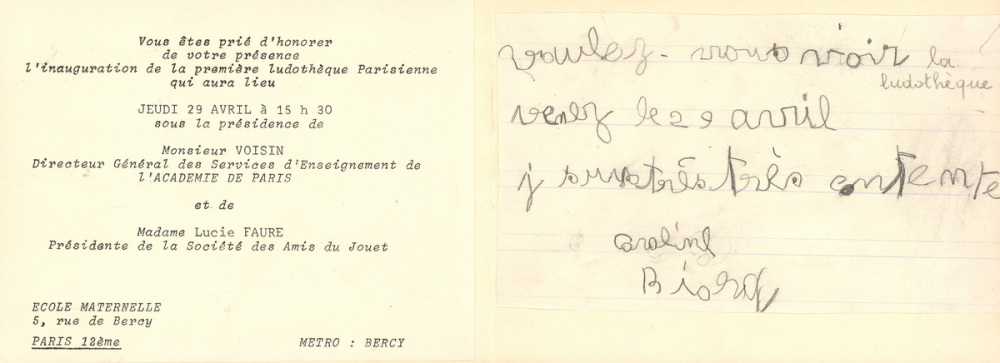 Vous êtes prié d'honorer
de votre présence
l'inauguration de la première ludothèque Parisienne
qui aura lieu
JEUDI 29 AVRIL à 15 h 30
sous la présidence de
Monsieur VOISIN
Directeur Général des Services d'Enseignement de
l'ACADEMIE DE PARIS
et de
Madame Lucie FAURE
Présidente de la Société des Amis du Jouet
ECOLE MATERNELLE
5, rue de Bercy
PARIS 12ème
METRO : BERCY
voulez-vous voir la
ludothèque
venez le 29 avril
j très très contente
caroline